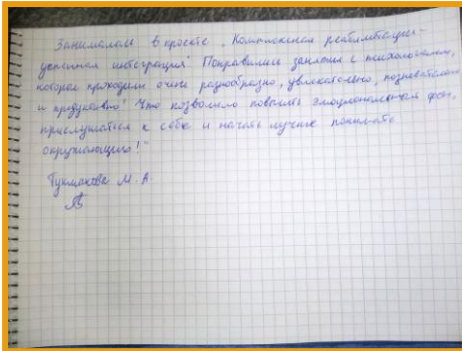 Занималась в проекте „Комплексная реабилитация-
успешная интеграция". Понравились занятия с психологом,
которые проходили очень разнообразно, увлекательно, познавательно
и продуктивно! Что позволило повысить эмоциональный фон,
прислушаться к себе и начать лучше понимать
окружающих!"
Тукмакова М. А.